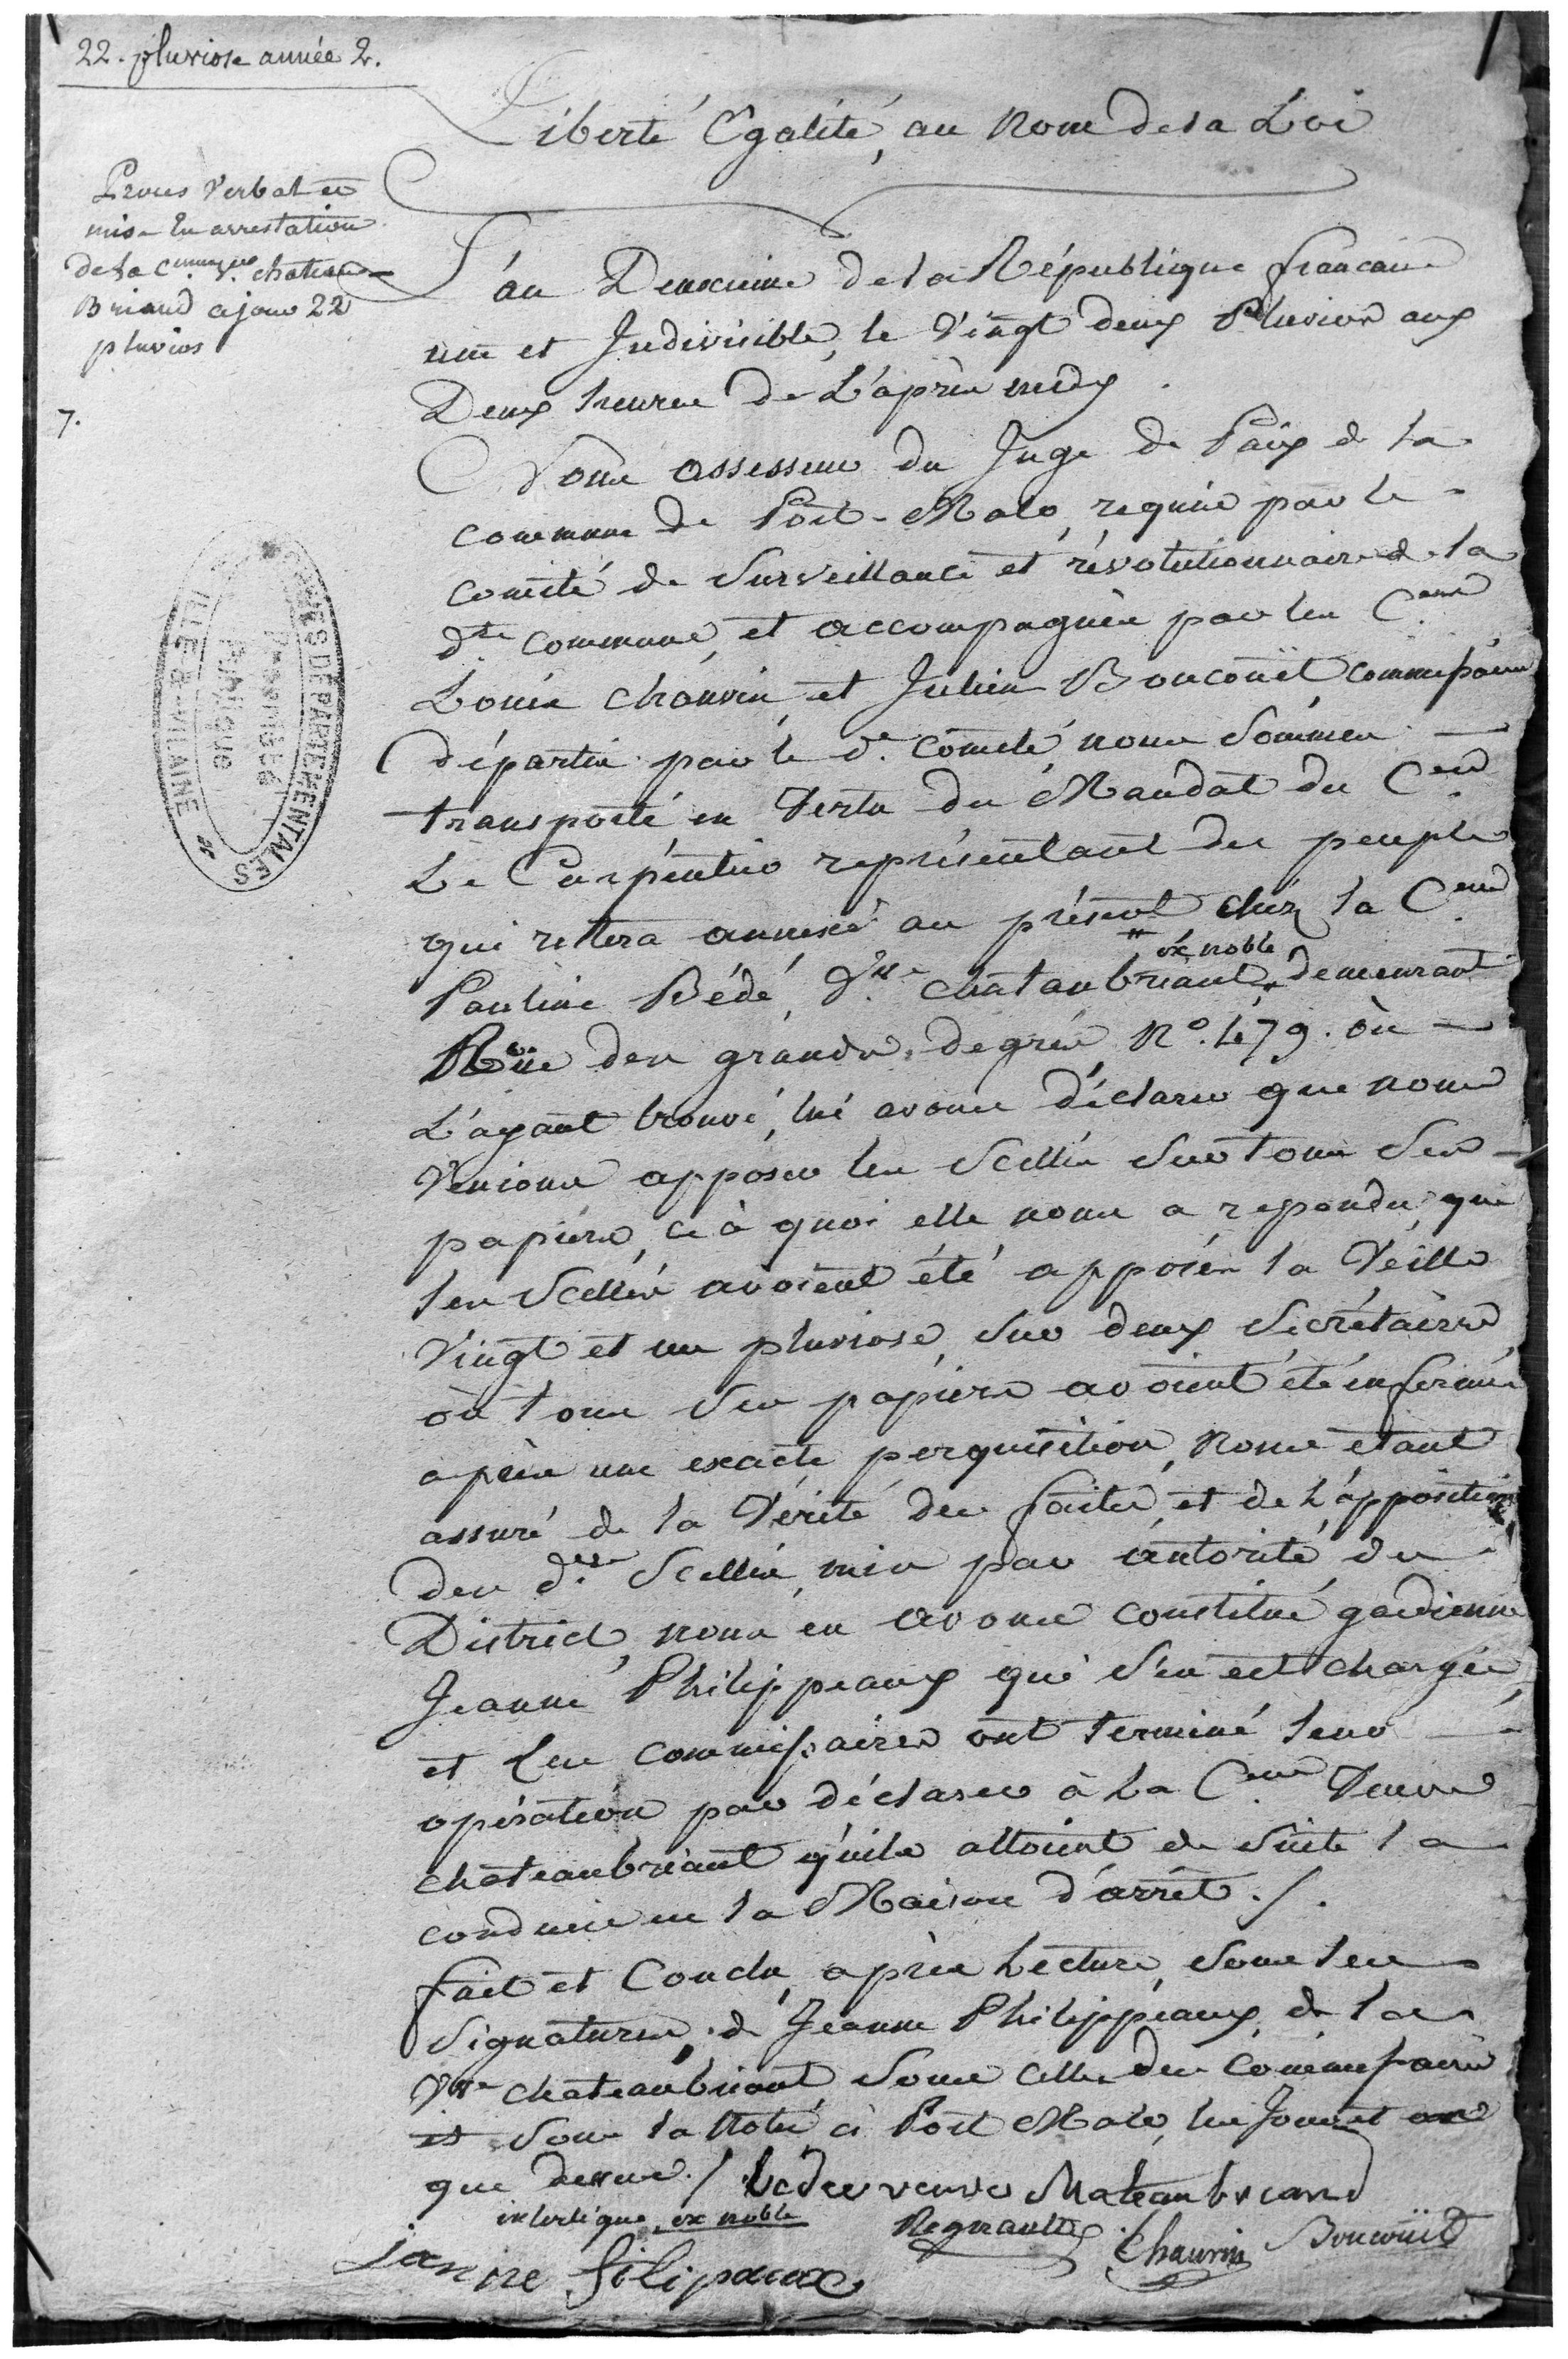 22. pluviose année 2.
Liberté Egalité, au Nom de la Loi
Proces Verbal et
mise En arrestation
de la C. Ve. chateau
Briand ce jour 22
pluvios
7.
L'an Deuxieme de la République francaise
une et Indivisible, le Vingt deux Pluviose aux
Deux heures de L'après midy.
Nous assesseur du Juge de Paix de la
commune de Port-Malo, requis par le
comité de Surveillance et révolutionnaire de la
dte commune, et accompagnés par les Cens
Louis chauvin, et Julien Boucoüet commissaires
départis par le d. comité, nous Sommes
transporté en Vertu du Mandat du Cen
Le Carpentier représentant du peuple
qui restera annexé au présent chéz la Cenne
Pauline Bédé, Vve chatanbriant demeurant
ex noble
Rüe des grands degrés, No. 479. où
L'ayant trouvé, lui avons déclaré que nous
Venions apposer les Scellés Sur tous Ses
papiers, ce à quoi elle nous a repondu, que
les Scellés avoient été apposés la Veille
Vingt et un pluviose, Sur deux Secrétaires
où tous Ses papiers avoient été enfermés
après une exacte perquisition, Nous etant
assuré de la Vérité des faits, et de L'apposition
des dts Scellés, mis par autorité du
District, nous en avons constitué gardienne
Jeanne Philippeaux qui S'en est chargée,
et Les commissaires ont terminé leur
opération par déclarer à La Cenne Veuve
chateaubriant qu'ils alloient de Suite la
conduire en la Maison d'arrêt./.
fait et Conclu, après Lecture, Sous les
Signatures, de Jeanne Philippeaux, de la
Vve chateaubriant, Sous celles des commissaires
et Sous la Notre à Port Malo, les Jour et an
que dessus./. bedee veuve chateaubriand
interligne ex noble
Regnault Chauvin Boucoüet
janne filipaux
ARCHIVES DÉPARTEMENTALES
ILLE-&-VILAINE